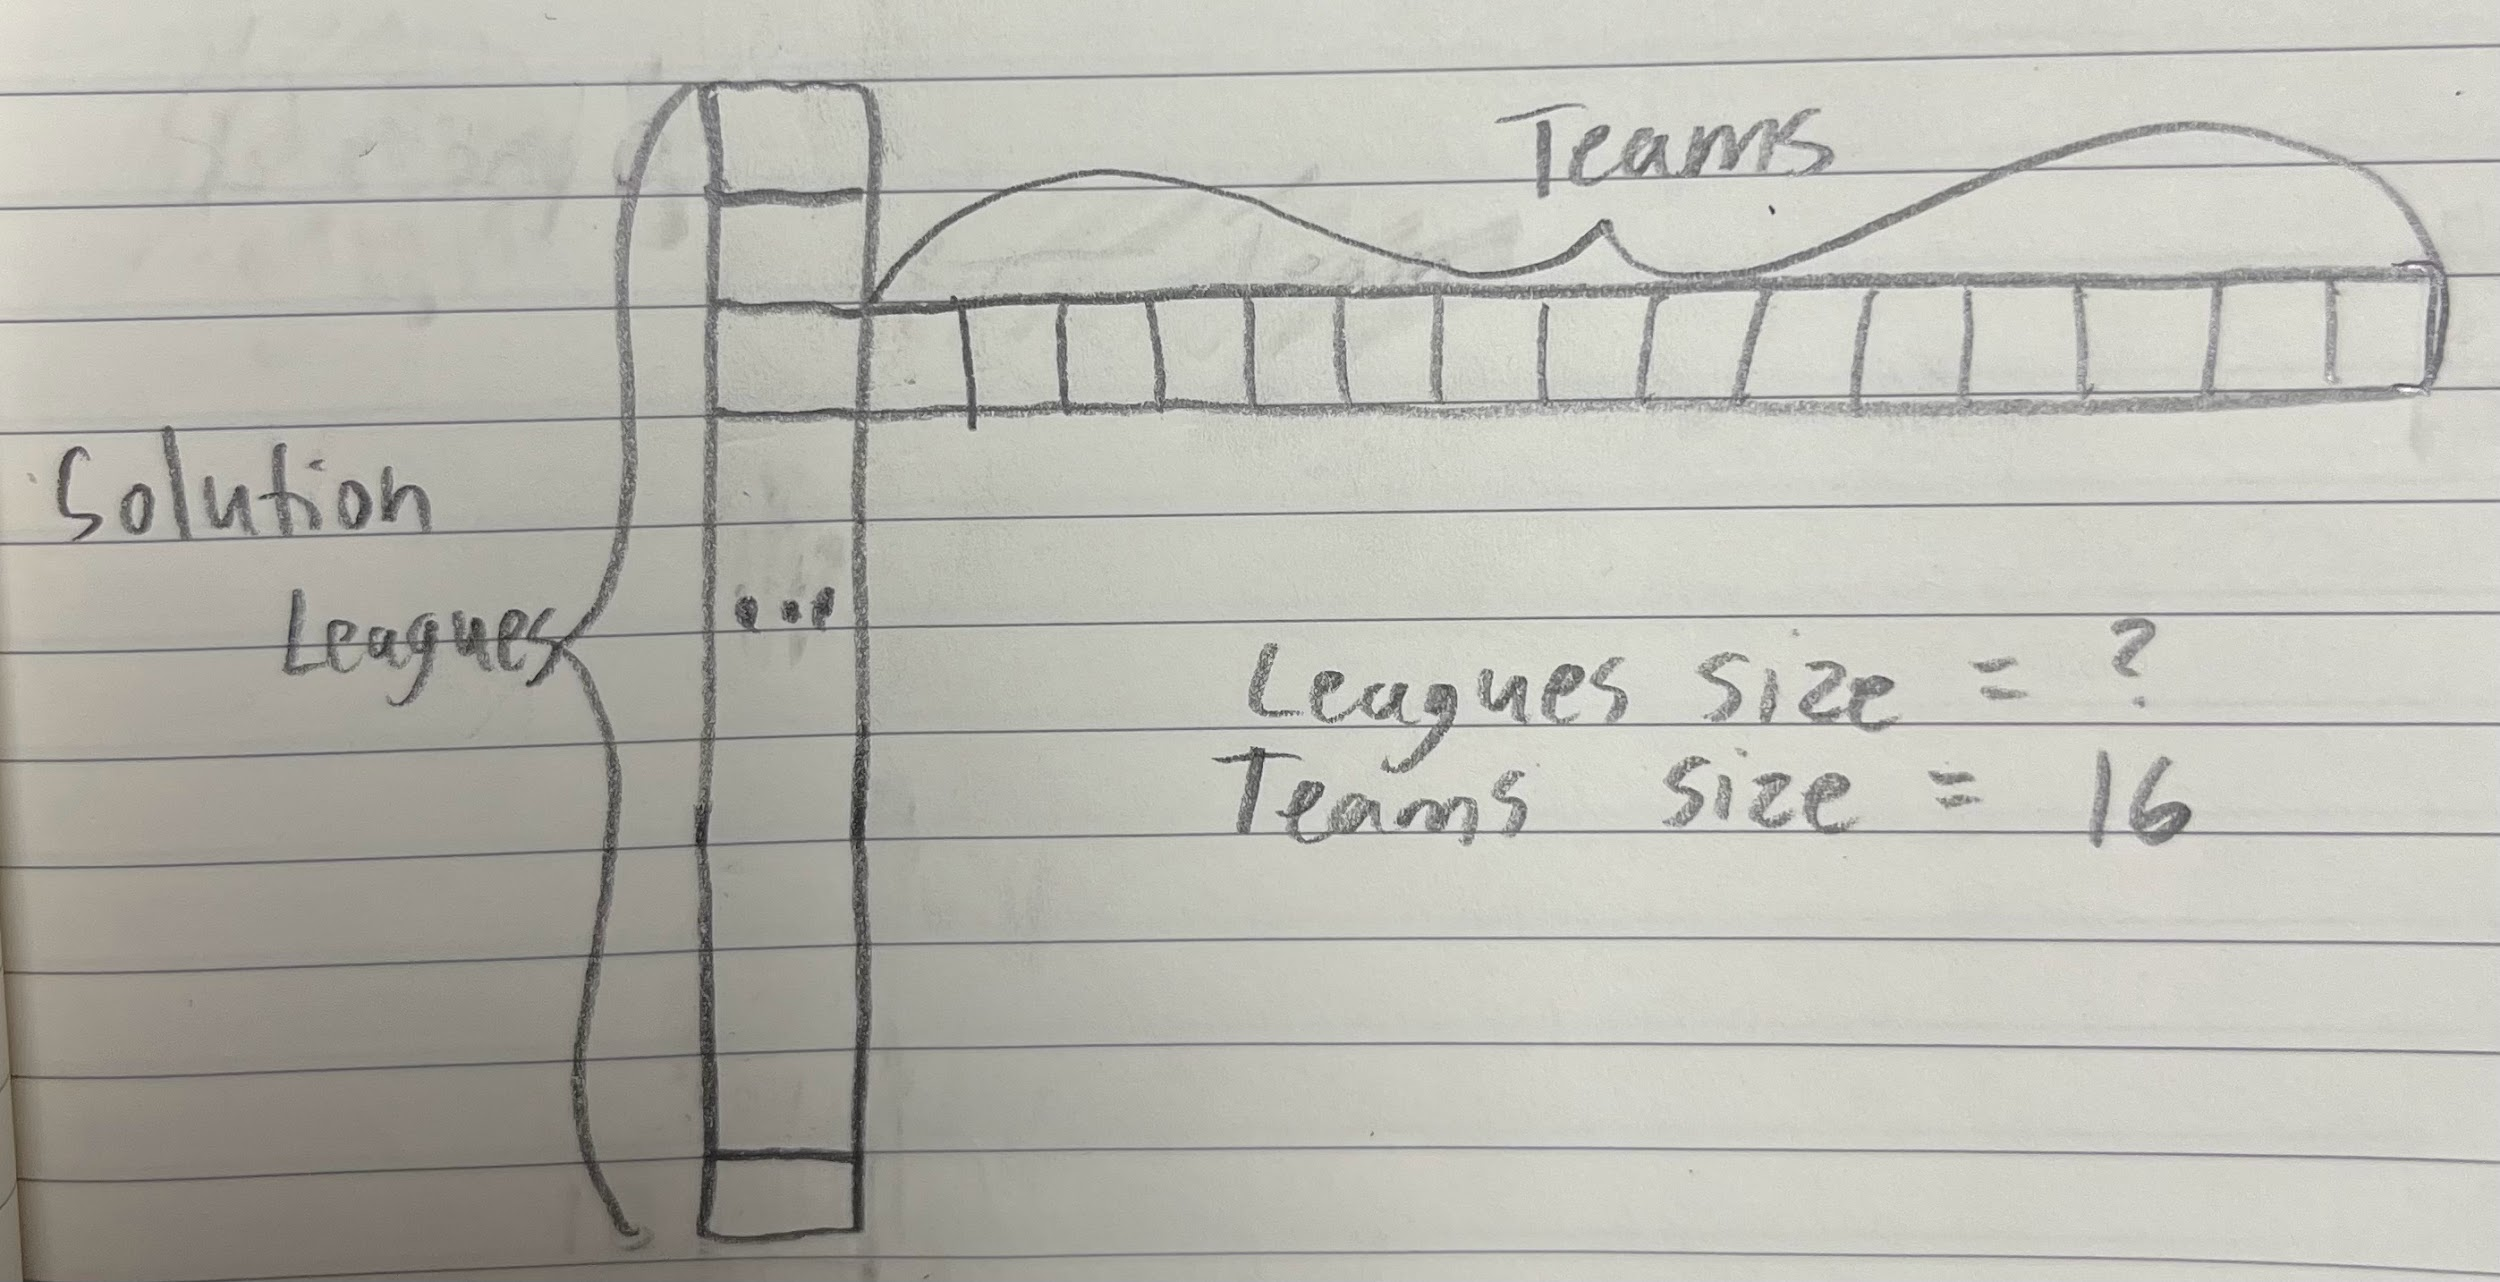 Teams
Solution
Leagues
...
Leagues size = ?
Teams size = 16